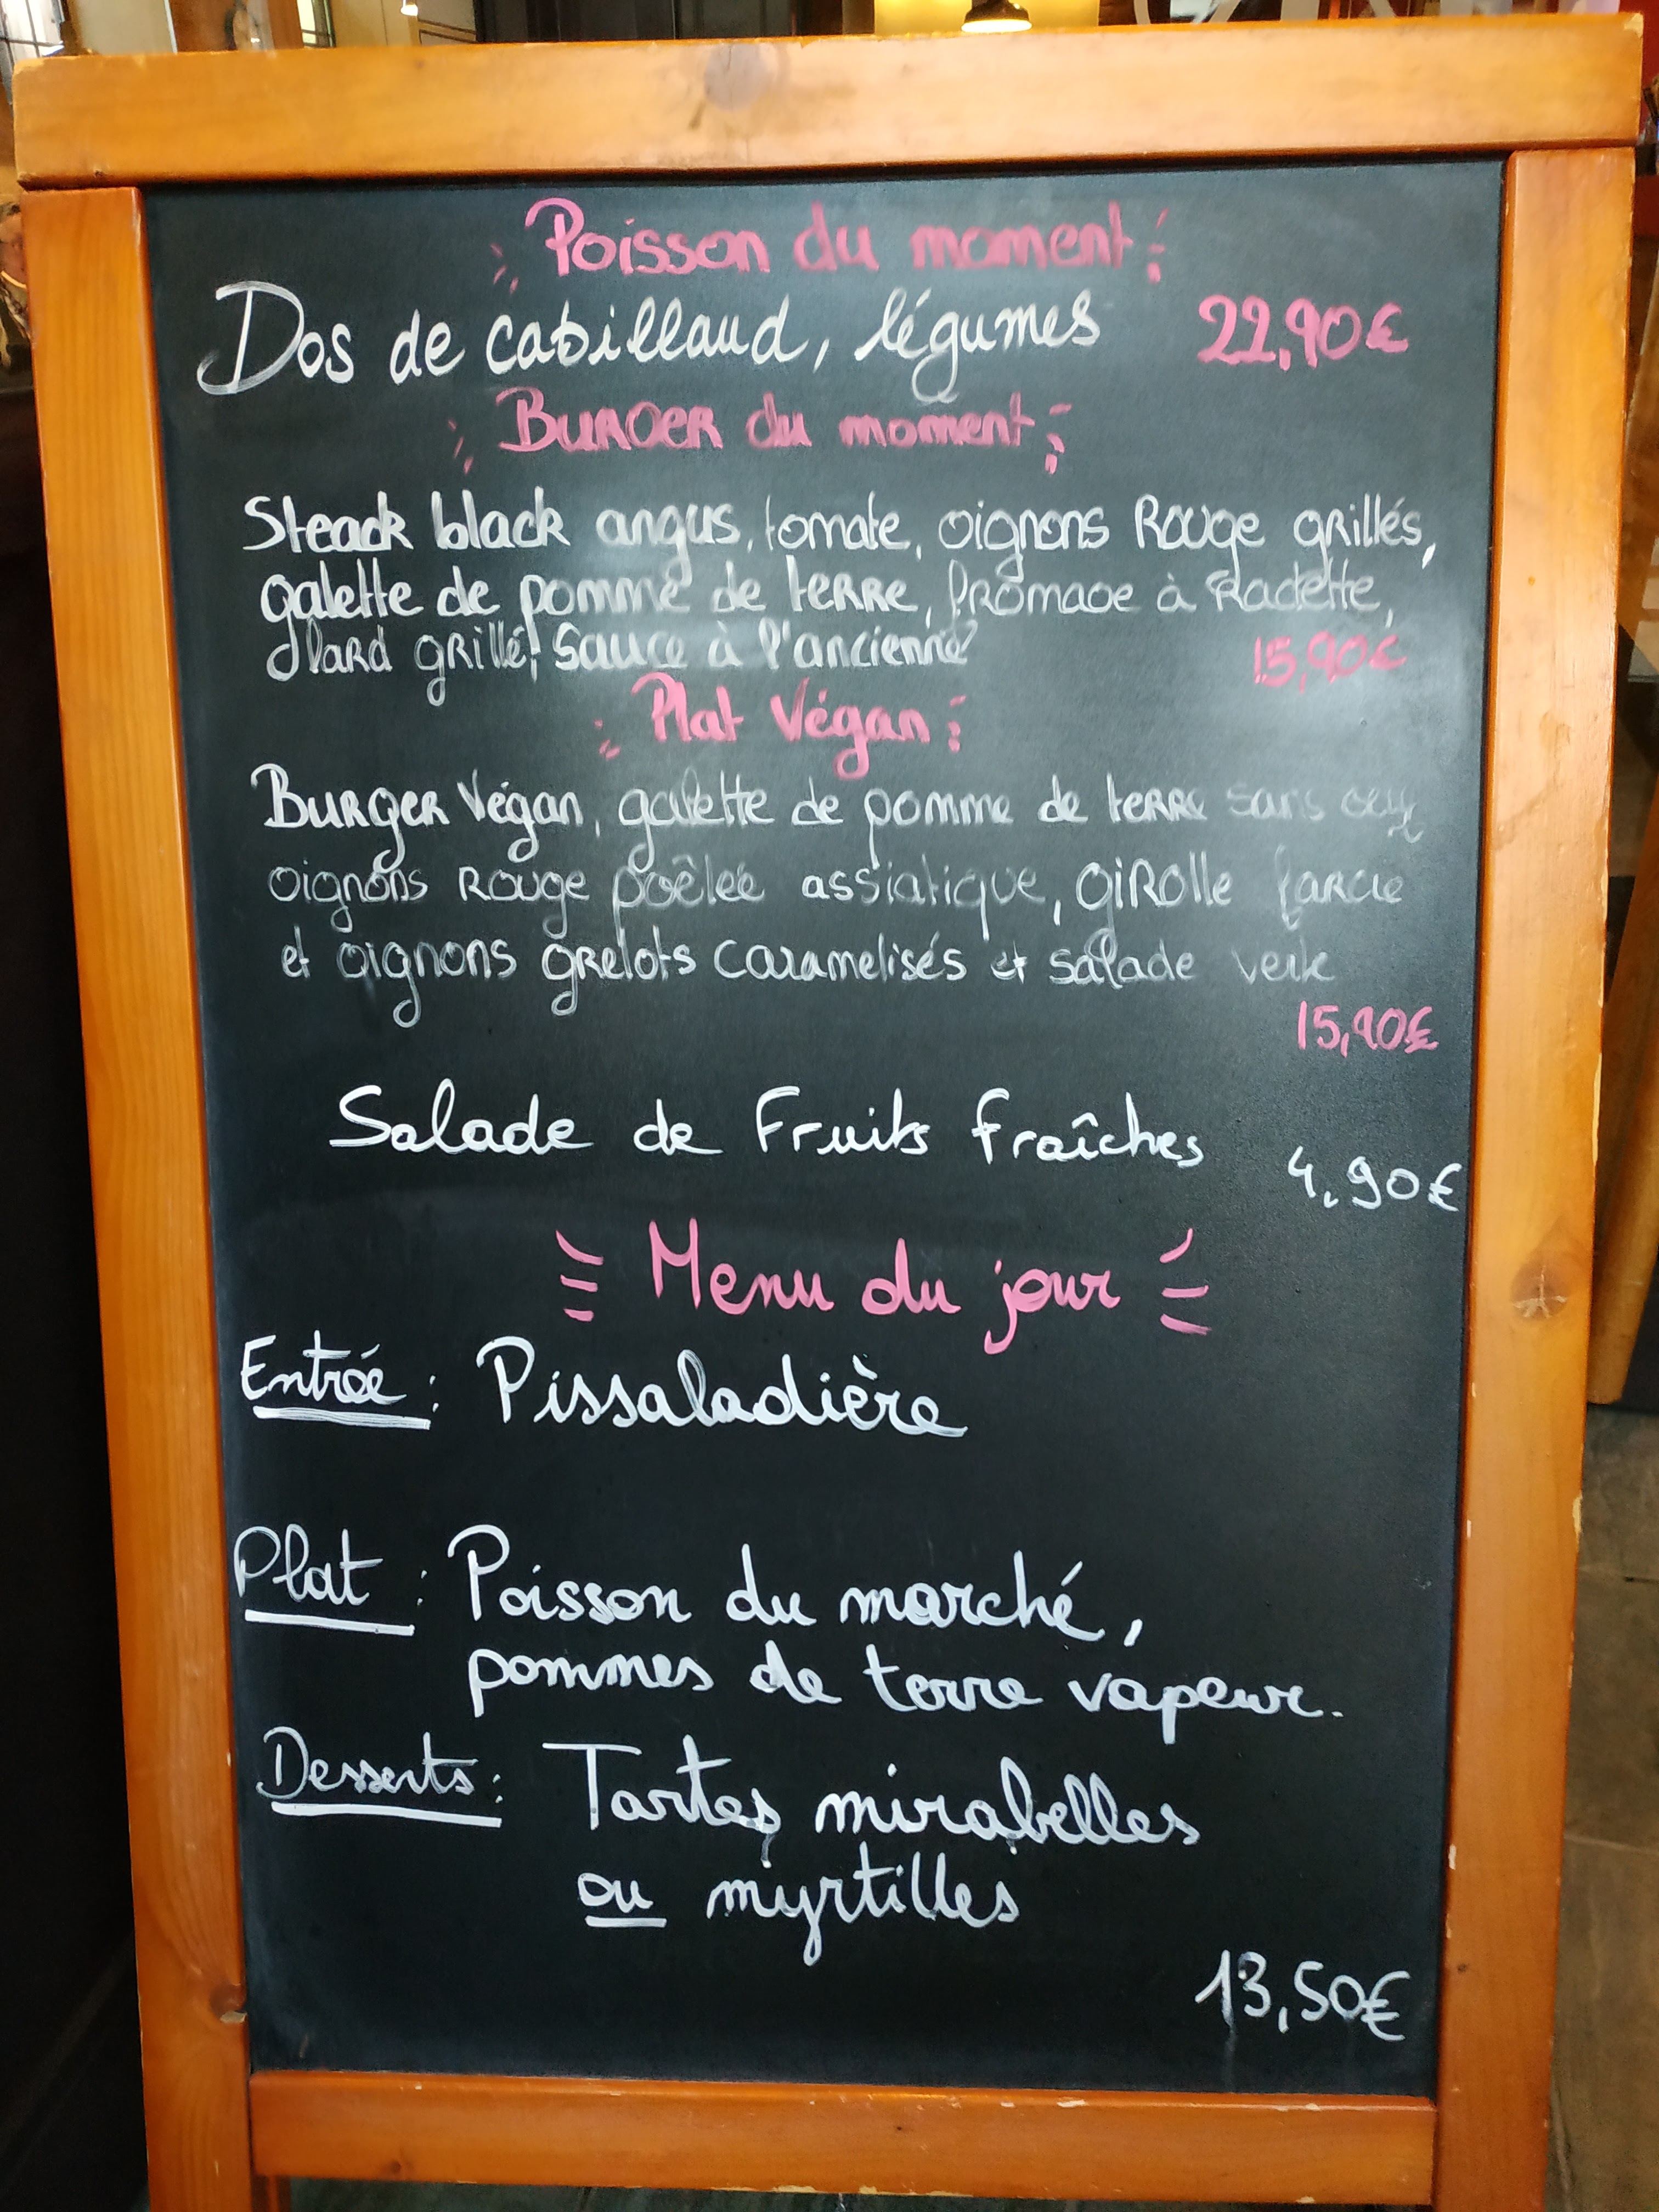 Poisson du moment
Dos de cabillaud, légumes 22,90€
Burger du moment
Steack black angus, tomate, oignons Rouge grillés,
galette de pomme de terre, fromage à Raclette,
lard grillé, Sauce à l'ancienne 15,90€
Plat Végan
Burger Végan, galette de pomme de terre sans oeuf
oignons Rouge poêlée assiatique, girolle farcie
et oignons grelots caramelisés et salade verte
15,90€
Salade de Fruits fraîches 4,90€
Menu du jour
Entrée : Pissaladière
Plat : Poisson du marché,
pommes de terre vapeur.
Desserts : Tartes mirabelles
ou myrtilles
13,50€